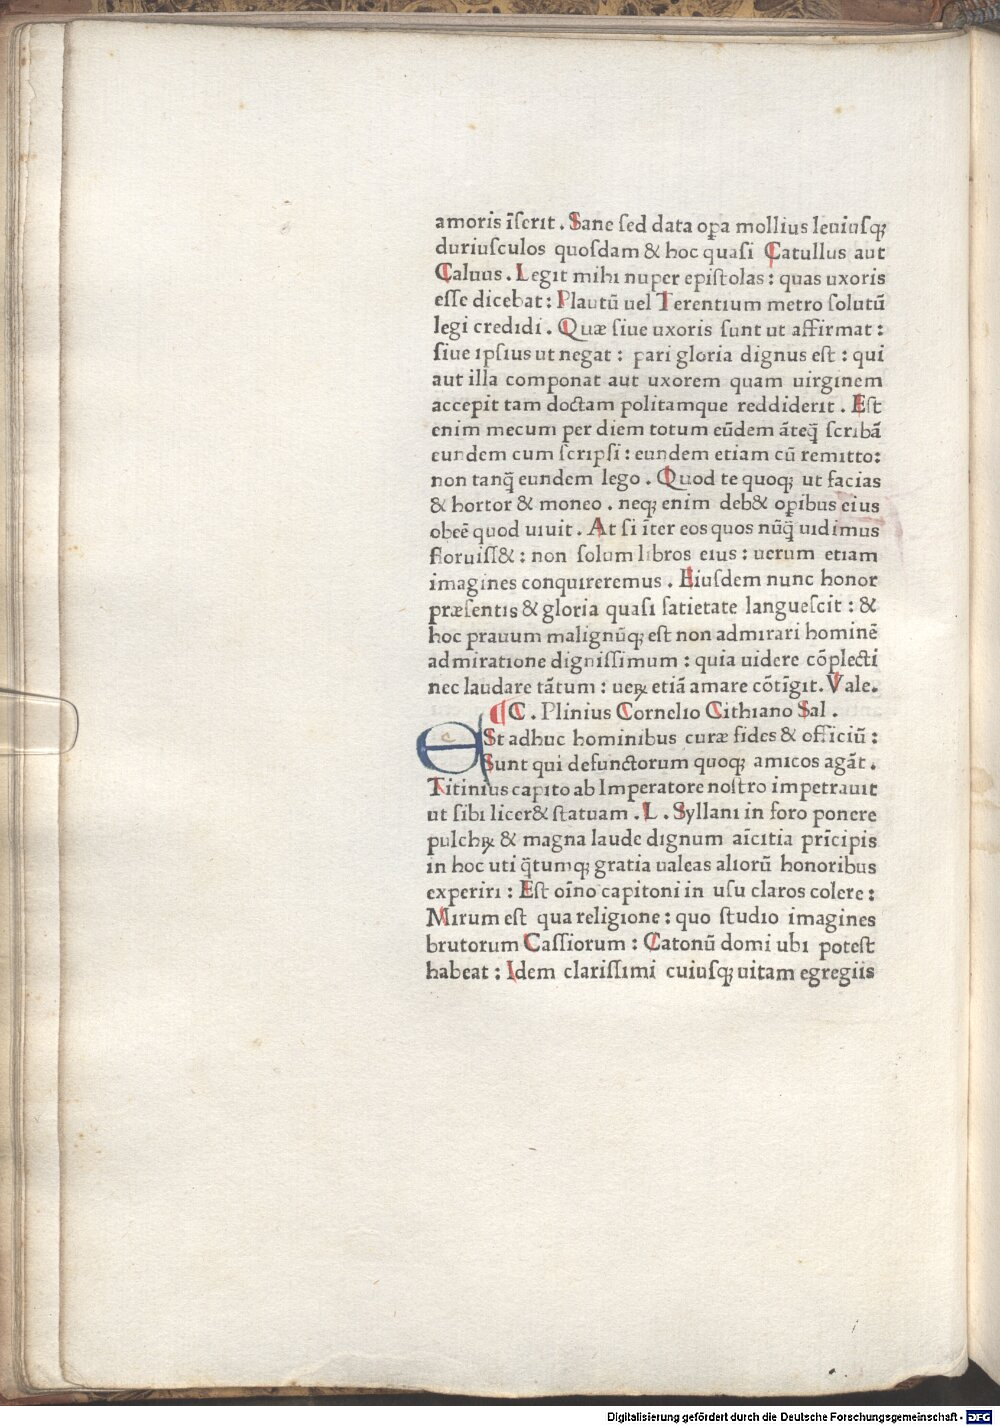 amoris īſerit . Sane ſed data opa mollius leuiuſq;
duriuſculos quoſdam & hoc quaſi Catullus aut
Caluus . Legit mihi nuper epiſtolas : quas uxoris
eſſe dicebat : Plautū uel Terentium metro ſolutū
legi credidi . Quæ ſiue uxoris ſunt ut affirmat :
ſiue ipſius ut negat : pari gloria dignus eſt : qui
aut illa componat aut uxorem quam uirginem
accepit tam doctam politamque reddiderit . Eſt
enim mecum per diem totum eūdem āteq̄ ſcribā
eundem cum ſcripſi : eundem etiam cū remitto:
non tanq̄ eundem lego . Quod te quoq; ut facias
& hortor & moneo . neq; enim deb& opibus eius
obeē quod uiuit . At ſi īter eos quos nūq̄ uidimus
floruiſſ& : non ſolum libros eius : uerum etiam
imagines conquireremus . Eiuſdem nunc honor
præſentis & gloria quaſi ſatietate langueſcit : &
hoc prauum malignūq; eſt non admirari hominē
admiratione digniſſimum : quia uidere cōplecti
nec laudare tātum : ueꝝ etiā amare cōtīgit. Vale.
C . Plinius Cornelio Cithiano Sal .
ESt adhuc hominibus curæ fides & officiū :
Sunt qui defunctorum quoq; amicos agāt .
Titinius capito ab Imperatore noſtro impetrauit
ut ſibi licer& ſtatuam . L . Syllani in foro ponere
pulchꝝ & magna laude dignum aīcitia prīcipis
in hoc uti q̄tumq; gratia ualeas aliorū honoribus
experiri : Eſt oīno capitoni in uſu claros colere :
Mirum eſt qua religione : quo ſtudio imagines
brutorum Caſſiorum : Catonū domi ubi poteſt
habeat : Idem clariſſimi cuiuſq; uitam egregiis
Digitalisierung gefördert durch die Deutsche Forschungsgemeinschaft - DFG